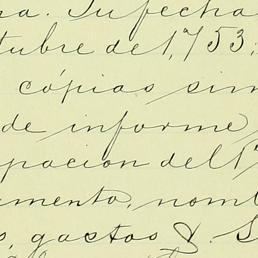 ra. Su fecha
tubre de 1,753;
cópias sim
de informe
pacion del 17
mento, nomb
s, gastos &. S